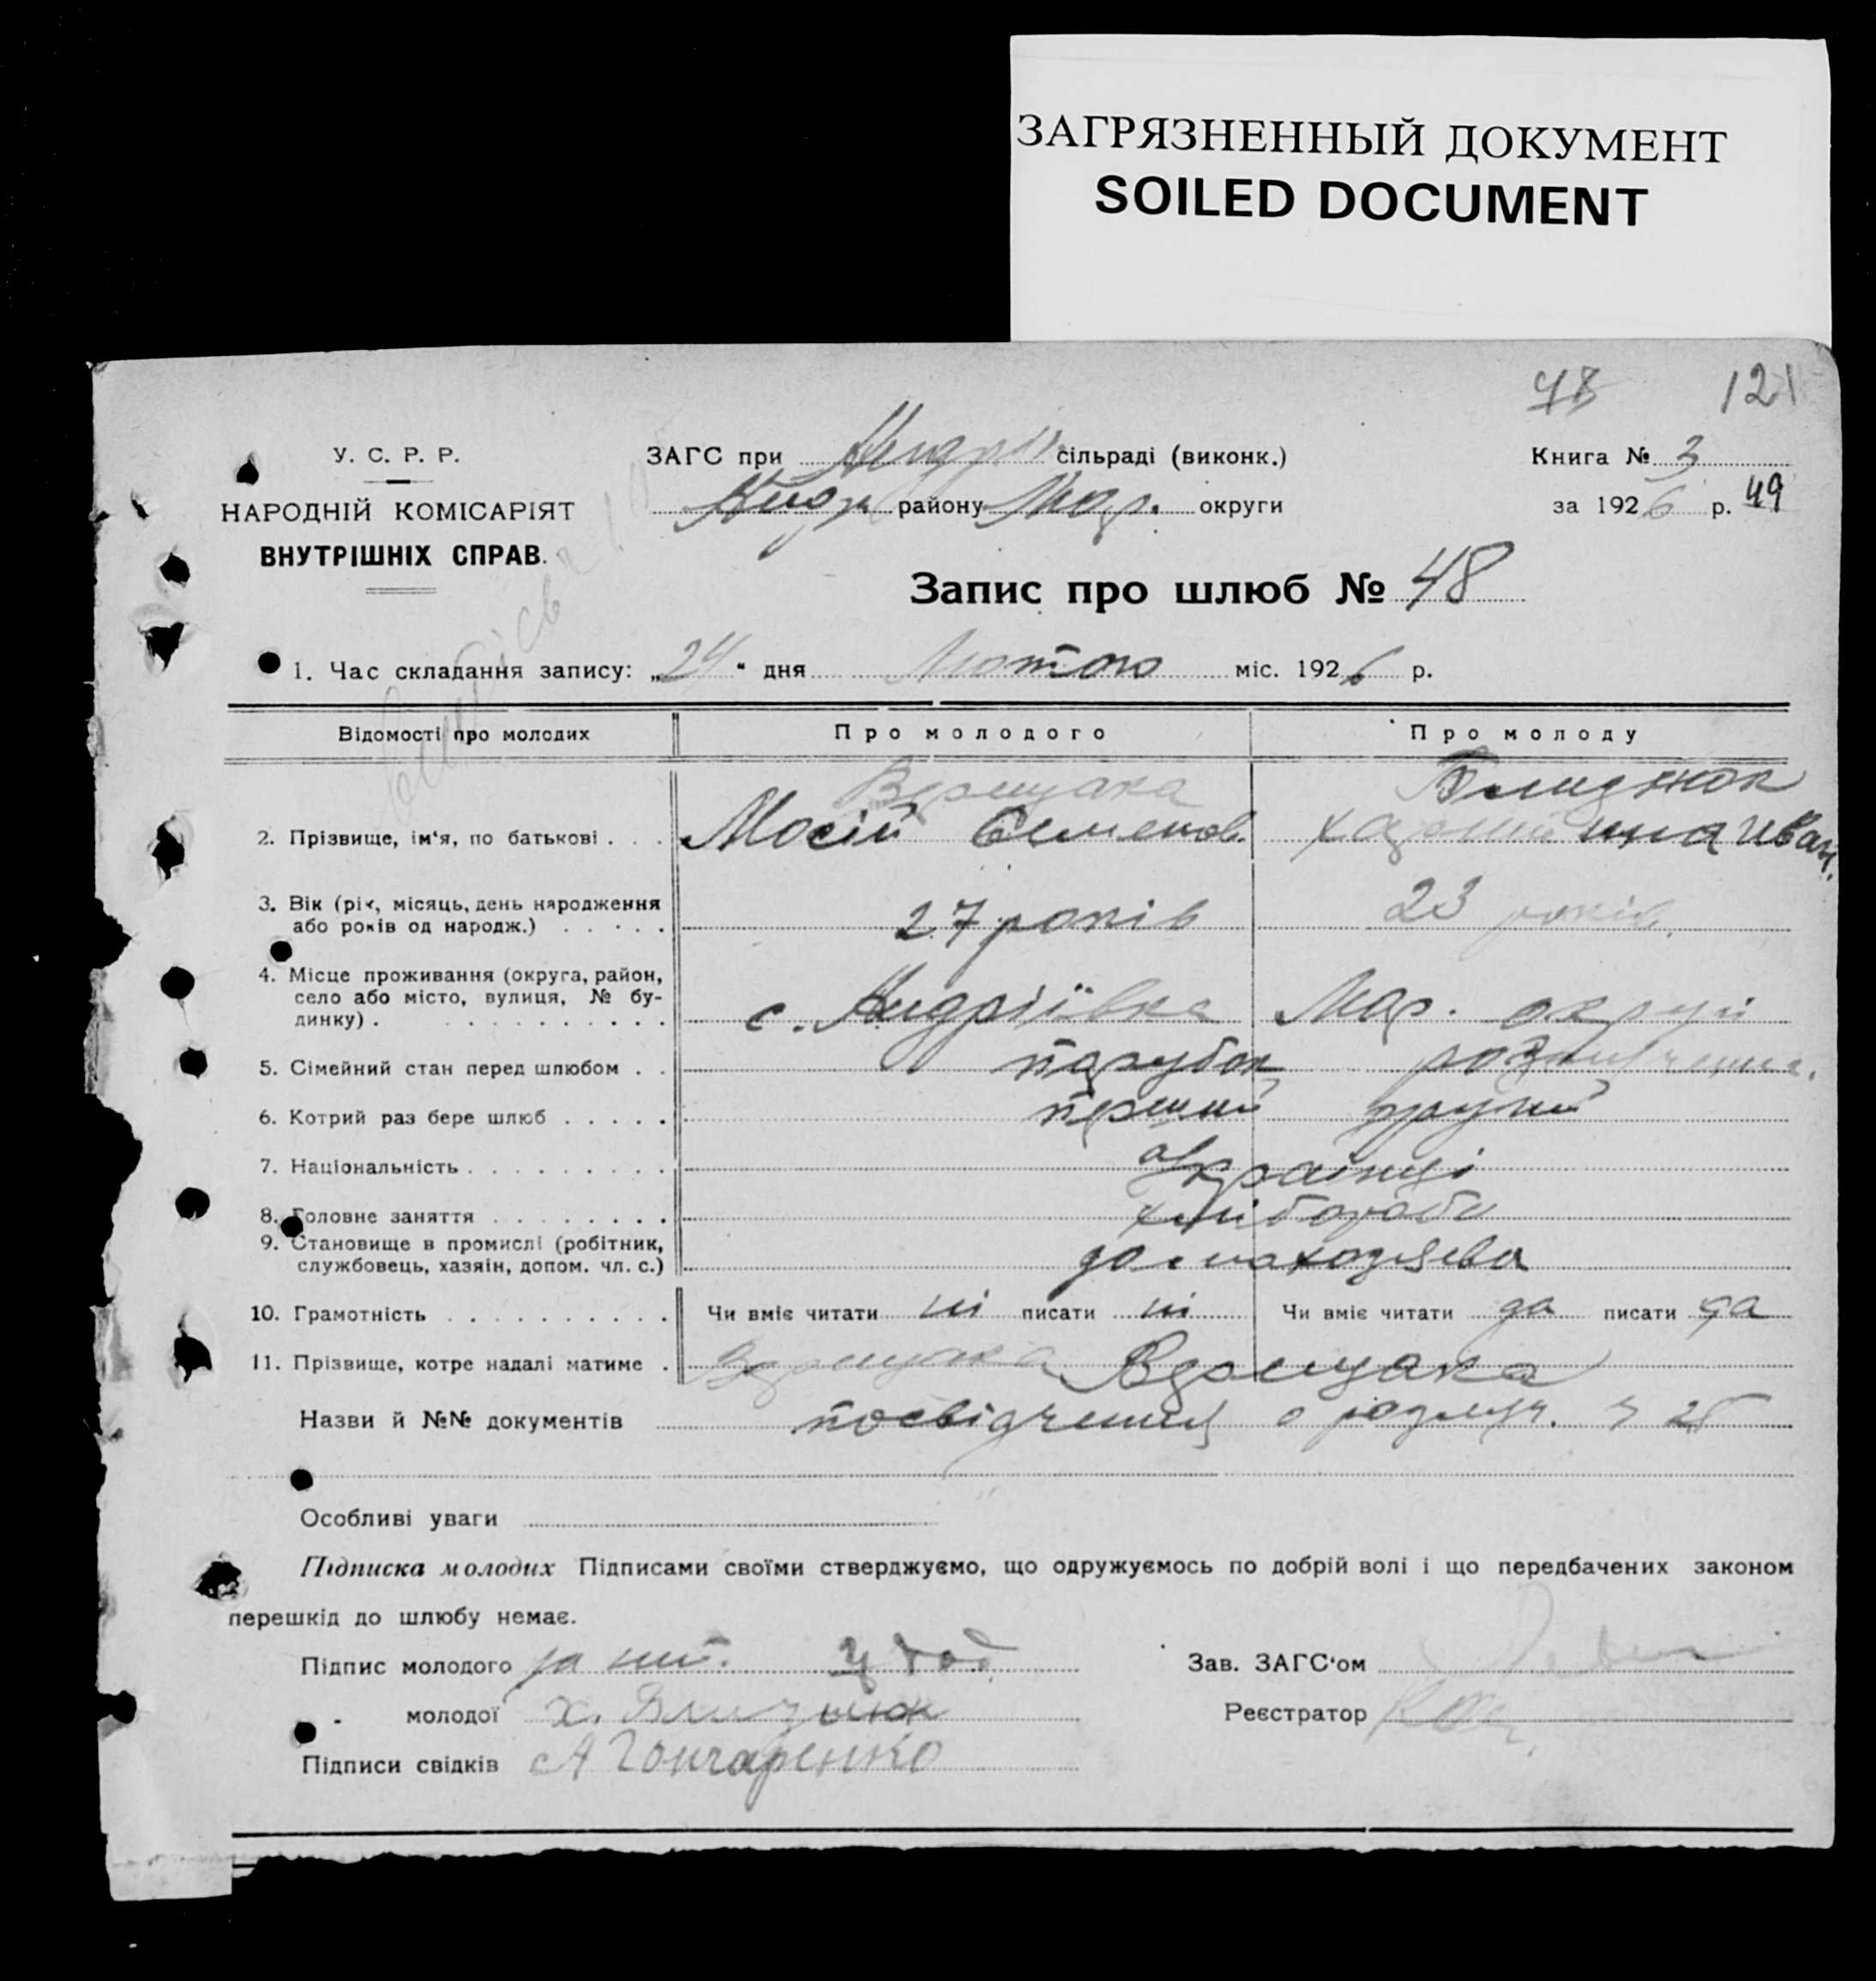 ЗАГРЯЗНЕННЫЙ ДОКУМЕНТ
SOILED DOCUMENT
48 121
У. С. Р. Р.
НАРОДНІЙ КОМІСАРІЯТ
ВНУТРІШНІХ СПРАВ.
ЗАГС при Андрії сільраді (виконк.)
Андр району Мар. округи
Книга № 3
за 1926 р. 49
Запис про шлюб № 48
1. Час складання запису: „24" дня Лютого міс. 1926 р.
Відомості про молодих Про молодого Про молоду
Верещака Близнюк
2. Прізвище, ім'я, по батькові . . . Мосій Семенов. Иван.
3. Вік (рік, місяць, день народження
або років од народж.) . . . . . 27 років 23 років
4. Місце проживання (округа, район,
село або місто, вулиця, № бу-
динку) . . . . . . . . . . . с. Андріївка Мар. округи
5. Сімейний стан перед шлюбом . . парубок
6. Котрий раз бере шлюб . . . . . перший другий
7. Національність . . . . . . . . . Українці
8. Головне заняття . . . . . . . . хлібороби
9. Становище в промислі (робітник,
службовець, хазяін, допом. чл. с.)
10. Грамотність . . . . . . . . . . Чи вміє читати ні писати ні Чи вміє читати да писати да
11. Прізвище, котре надалі матиме . Верещака Верещака
Назви й №№ документів посвідчення о розлуч.
Особливі уваги
Підписка молодих Підписами своїми стверджуємо, що одружуємось по добрій волі і що передбачених законом
перешкід до шлюбу немає.
Підпис молодого за нип.
Зав. ЗАГС'ом
молодої Х. Близнюк
Реєстратор
Підписи свідків А Гончаренко